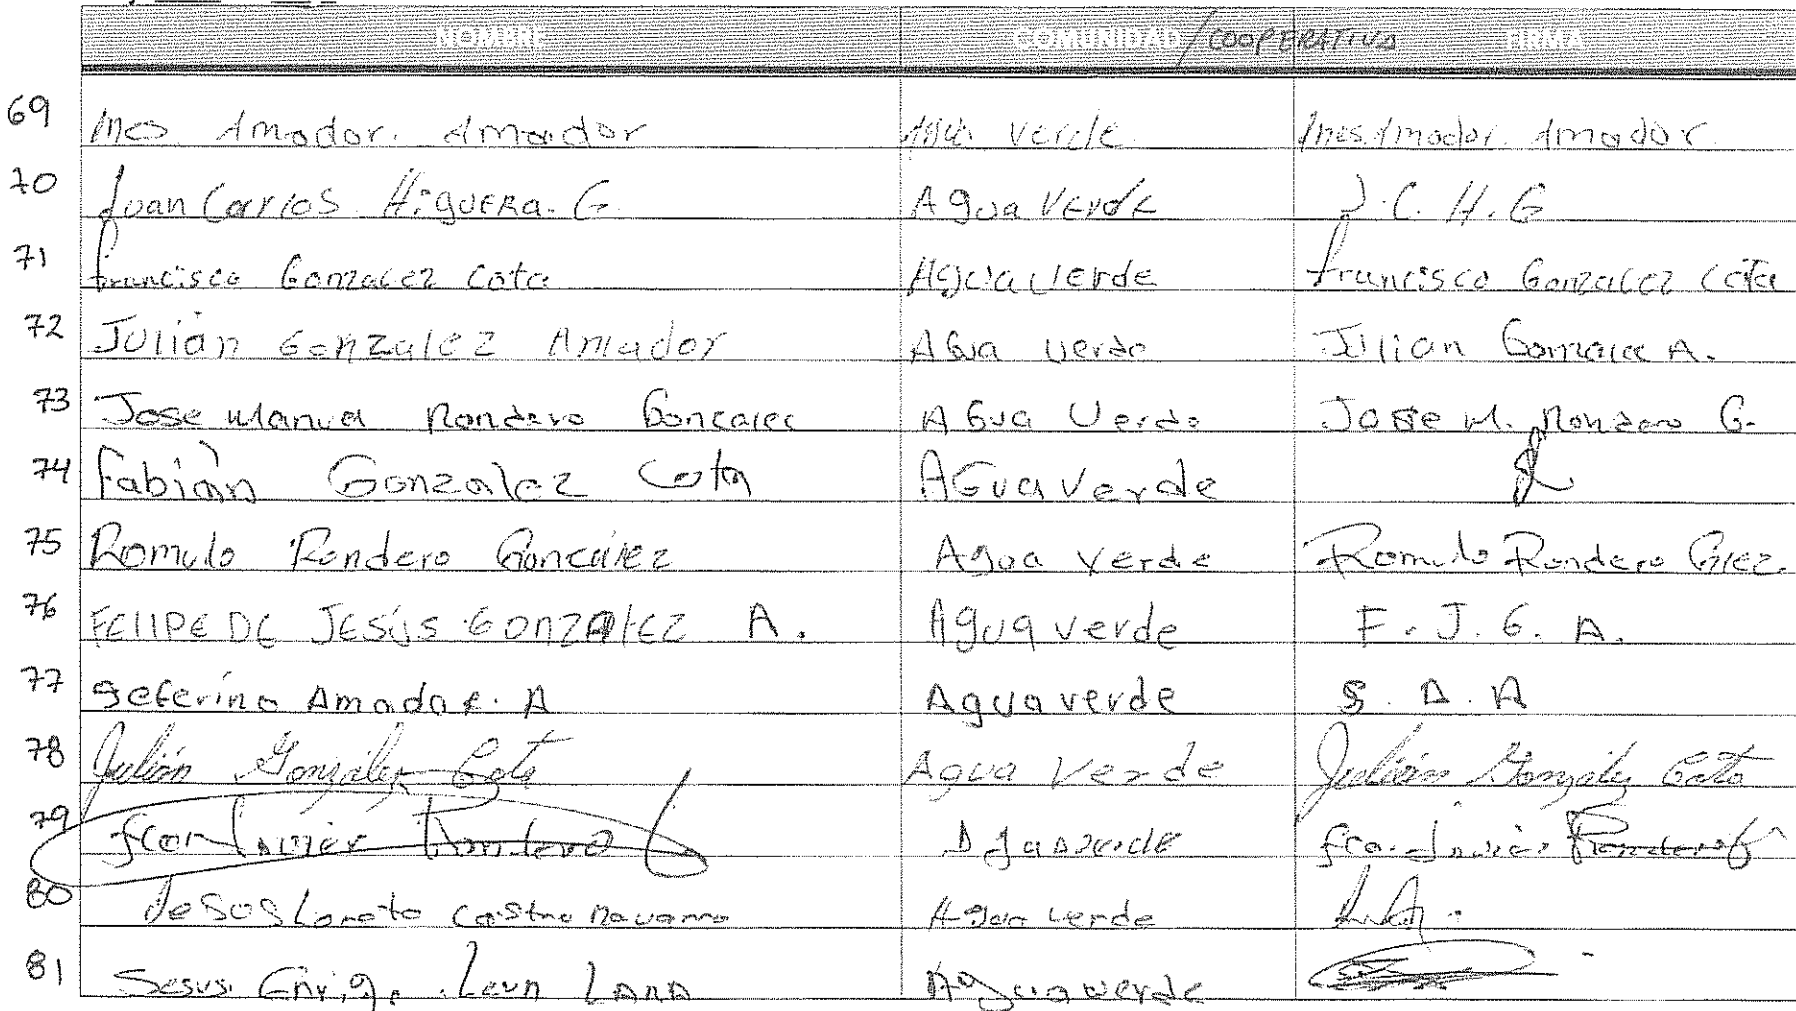 NOMBRE COMUNIDAD /COOPERATIVA FIRMA
69 Ines Amador. Amador Agua Verde Ines Amador. Amador
70 Juan Carlos Higuera. G. Agua Verde J. C. H. G
71 francisco Gonzalez Cota Agua Verde francisco Gonzalez Cota
72 Julián Gonzalez Amador AGua Verde Julian Gonzalez A.
73 Jose Manuel Rondero Gonzalez AGua Verde Jose M. Rondero G.
74 Fabián Gonzalez Cota AGua Verde
75 Romulo Rondero Gonzalez Agua Verde Romulo Rondero Glez.
76 FELIPE DE JESÚS GONZALEZ A. Agua verde F. J. G. A.
77 Seferino Amador. A Agua verde S. A. A
78 Julián González Cota Agua Verde Julián González Cota
79 fco. Javier Rondero G Aguaverde fco. Javier Rondero G
80 Jesos Loreto Castro Navarro Agua Verde
81 Jesus. Enriq. Leon Lara Agua verde